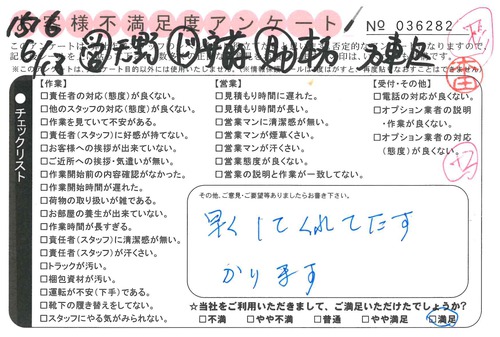 お客様不満足度アンケート
№ 036282
チェックリスト
【作業】
□責任者の対応(態度)が良くない。
□他のスタッフの対応(態度)が良くない。
□作業を見ていて不安がある。
□責任者(スタッフ)に好感が持てない。
□お客様への挨拶が出来ていない。
□ご近所への挨拶・気遣いが無い。
□作業開始前の内容確認がなかった。
□作業開始時間が遅れた。
□荷物の取り扱いが雑である。
□お部屋の養生が出来ていない。
□作業時間が長すぎる。
□責任者(スタッフ)に清潔感が無い。
□責任者(スタッフ)が汗くさい。
□トラックが汚い。
□梱包資材が汚い。
□運転が不安(下手)である。
□靴下の履き替えをしてない。
□スタッフにやる気がみられない。
【営業】
□見積もり時間に遅れた。
□見積もり時間が長い。
□営業マンに清潔感が無い。
□営業マンが煙草くさい。
□営業マンが汗くさい。
□営業態度が良くない。
□営業の説明と作業が一致してない。
【受付・その他】
□電話の対応が良くない。
□オプション業者の説明
・作業が良くない。
□オプション業者の対応
(態度)が良くない。
その他、ご意見・ご要望等ありましたらお書き下さい。
早くしてくれてたす
かります
☆当社をご利用いただきまして、ご満足いただけたでしょうか?
□不満 □やや不満 □普通 □やや満足 □満足